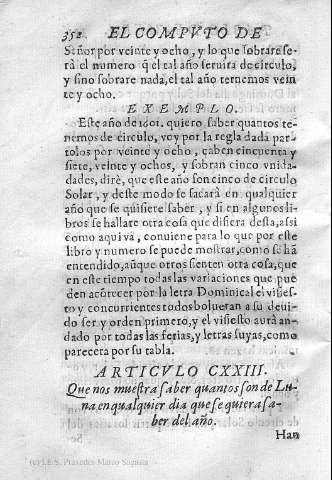 352. EL COMPVTO DE
Señor por veinte y ocho, y lo que sobrare se-
rà el numero q̃ el tal año seruira de circulo,
y sino sobrare nada, el tal año ternemos vein
te y ocho.
EXEMPLO.
Este año de 1601. quiero saber quantos te-
nemos de circulo, voy por la regla dada par-
tolos por veinte y ocho, caben cincuenta y
siete, veinte y ochos, y sobran cinco vnida-
dades, dirè, que este año son cinco de circulo
Solar, y deste modo se sacarà en qualquier
año que se quisiere saber, y si en algunos li-
bros se hallare otra cosa que difiera desta, assi
como aqui va, conuiene para lo que por este
libro y numero se puede mostrar, como se hà
entendido, aũque otros sienten otra cosa, que
en este tiempo todas las variaciones que pue-
den acõtecer por la letra Dominical el visies-
to y concurrientes todos bolueran a su deui-
do ser y orden primero, y el visiesto aurà an-
dado por todas las ferias, y letras suyas, como
parecera por su tabla.
ARTICVLO CXXIII.
Que nos muestra saber quantos son de Lu-
na en qualquier dia que se quiera sa-
ber del año.
Han
(c) I.E.S. Práxedes Mateo Sagasta